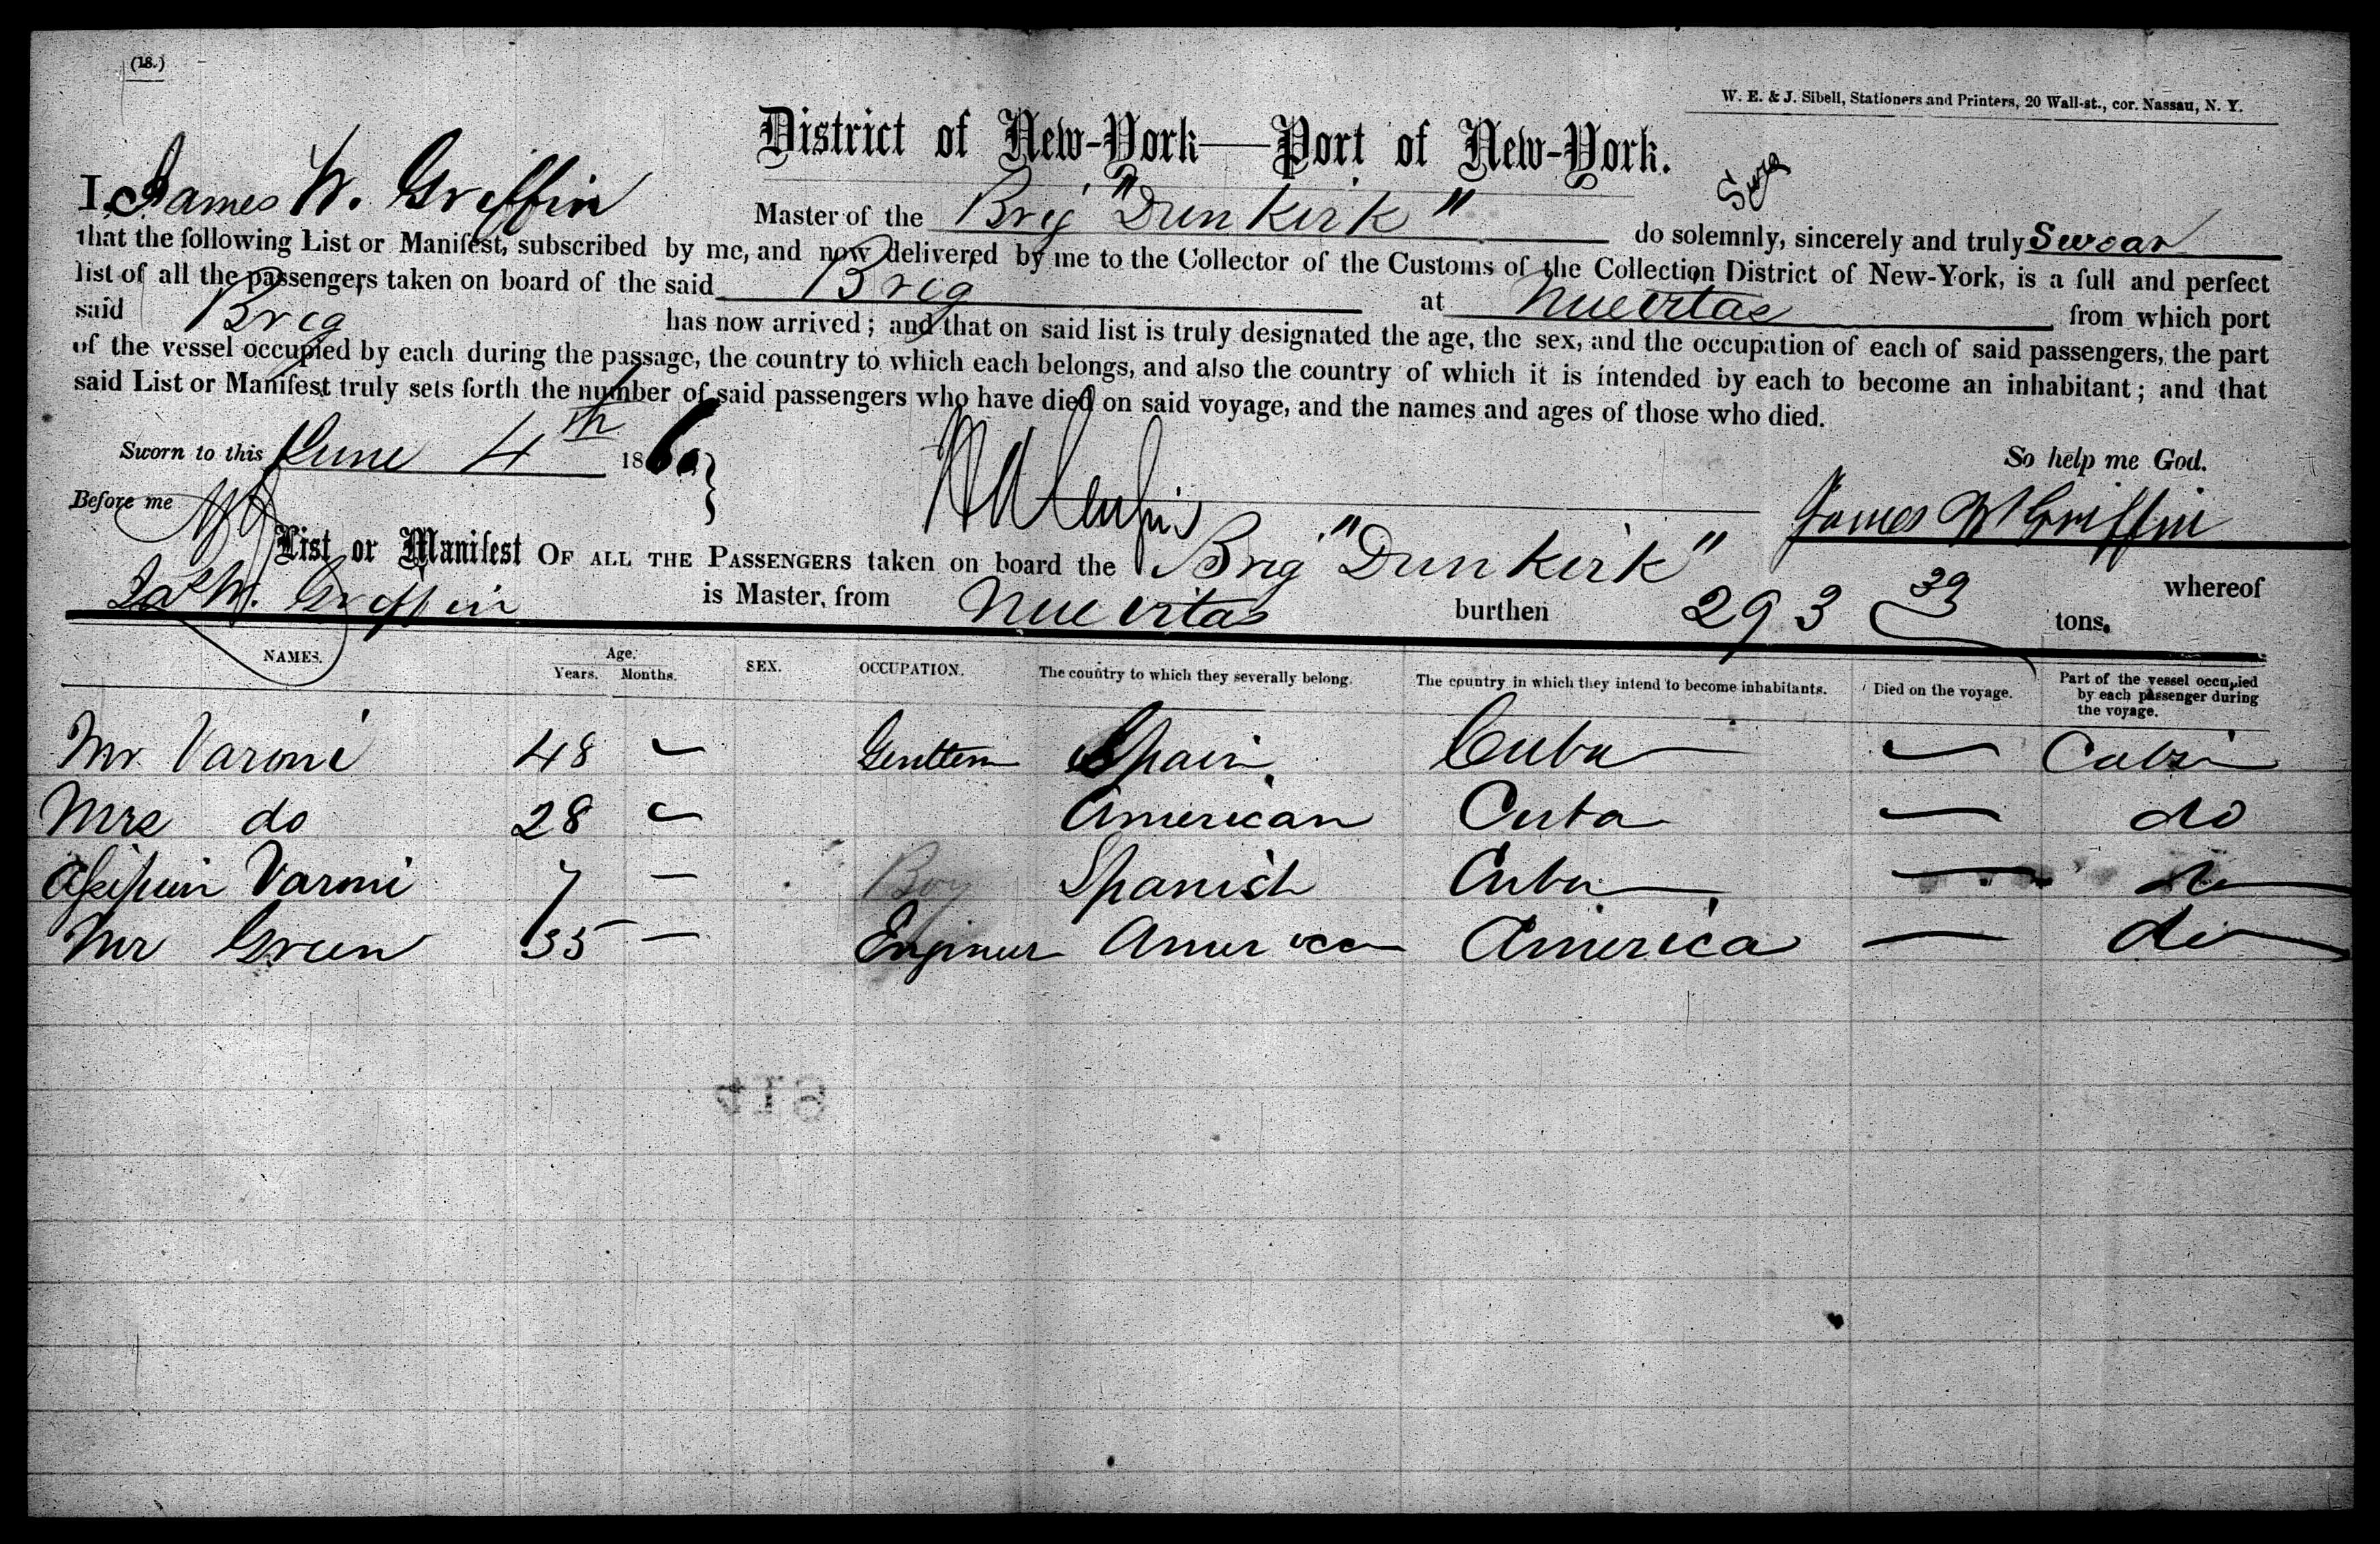 (18.)
W. E. & J. Sibell, Stationers and Printers, 20 Wall-st., cor. Nassau, N. Y.
District of New-York—Port of New-York.
I, James W. Griffin Master of the Brig "Dunkirk" do solemnly, sincerely and truly Swear
that the following List or Manifest, subscribed by me, and now delivered by me to the Collector of the Customs of the Collection District of New-York, is a full and perfect
list of all the passengers taken on board of the said Brig at Nuevitas from which port
said Brig has now arrived; and that on said list is truly designated the age, the sex, and the occupation of each of said passengers, the part
of the vessel occupied by each during the passage, the country to which each belongs, and also the country of which it is intended by each to become an inhabitant; and that
said List or Manifest truly sets forth the number of said passengers who have died on said voyage, and the names and ages of those who died.
Sworn to this June 4th 186
So help me God.
Before me
James W Griffin
List or Manifest OF ALL THE PASSENGERS taken on board the Brig "Dunkirk" whereof
Griffin is Master, from Nuevitas burthen 293 39 tons.
NAMES. Age. Years. Months. SEX. OCCUPATION. The country to which they severally belong. The country in which they intend to become inhabitants. Died on the voyage. Part of the vessel occupied by each passenger during the voyage.
Mr Varoni 48 — Spain Cuba — Cabin
Mrs do 28 — American Cuba — do
Varoni 7 — Boy Spanish Cuba — do
Mr Green 35 — Engineer American America — do